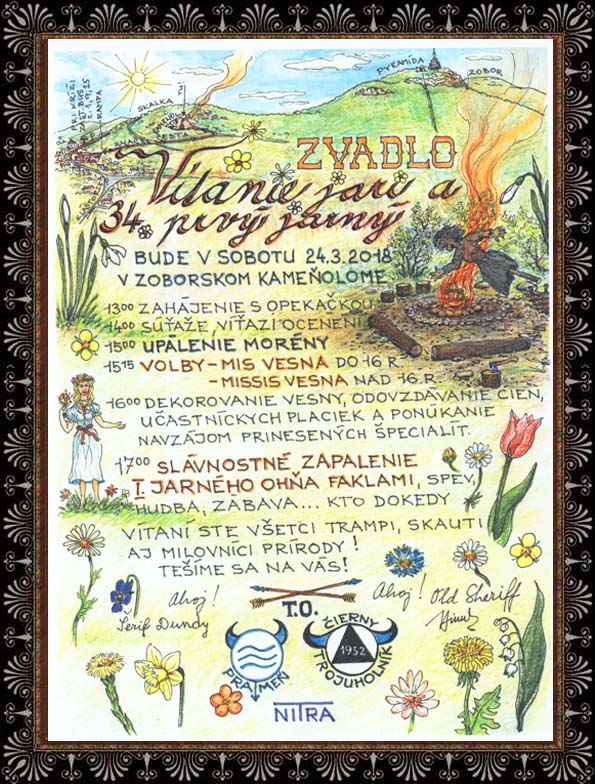 PRI KRÍŽI
ZAST. BUS
Č. 1, 9, 25
SKALKA
PYRAMÍDA
ZOBOR
ZVADLO
Vítanie jari a
34. prvý jarný
BUDE V SOBOTU 24.3.2018
V ZOBORSKOM KAMEŇOLOME
13⁰⁰ ZAHÁJENIE S OPEKAČKOU
14⁰⁰ SÚŤAŽE, VÍŤAZI OCENENÍ
15⁰⁰ UPÁLENIE MORÉNY
15¹⁵ VOLBY - MIS VESNA DO 16 R.
- MISSIS VESNA NAD 16.R.
16⁰⁰ DEKOROVANIE VESNY, ODOVZDÁVANIE CIEN,
ÚČASTNÍCKYCH PLACIEK A PONÚKANIE
NAVZÁJOM PRINESENÝCH ŠPECIALÍT.
17⁰⁰ SLÁVNOSTNÉ ZAPÁLENIE
I. JARNÉHO OHŇA FAKLAMI, SPEV,
HUDBA, ZÁBAVA... KTO DOKEDY
VÍTANÍ STE VŠETCI TRAMPI, SKAUTI
AJ MILOVNÍCI PRÍRODY!
TEŠÍME SA NA VÁS!
Ahoj!
Šerif Dundy
T.O.
Ahoj! Old Sheriff
PRAMEŇ
ČIERNY
1952
TROJUHOLNÍK
NITRA